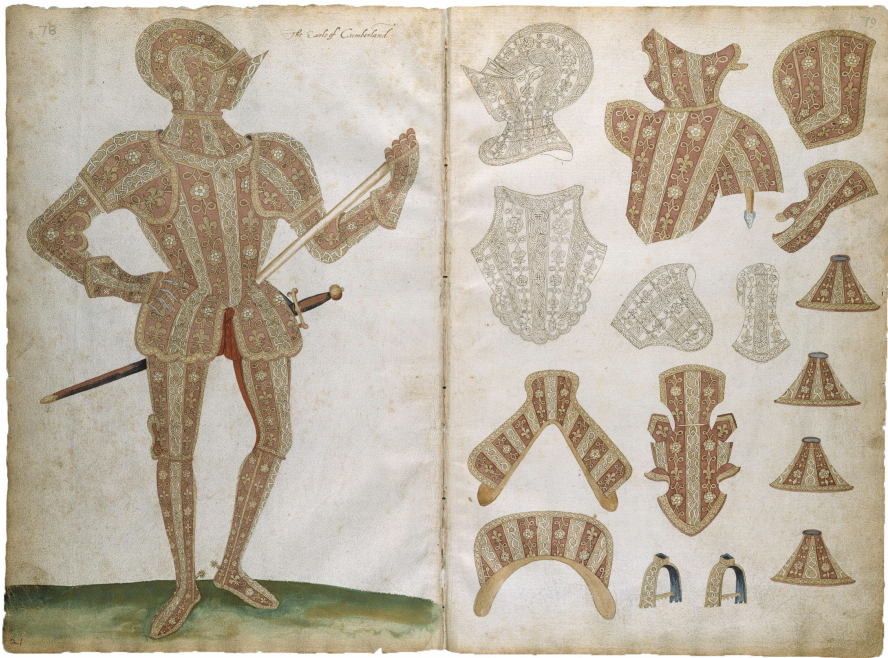 78
The Earle of Cumberland
79